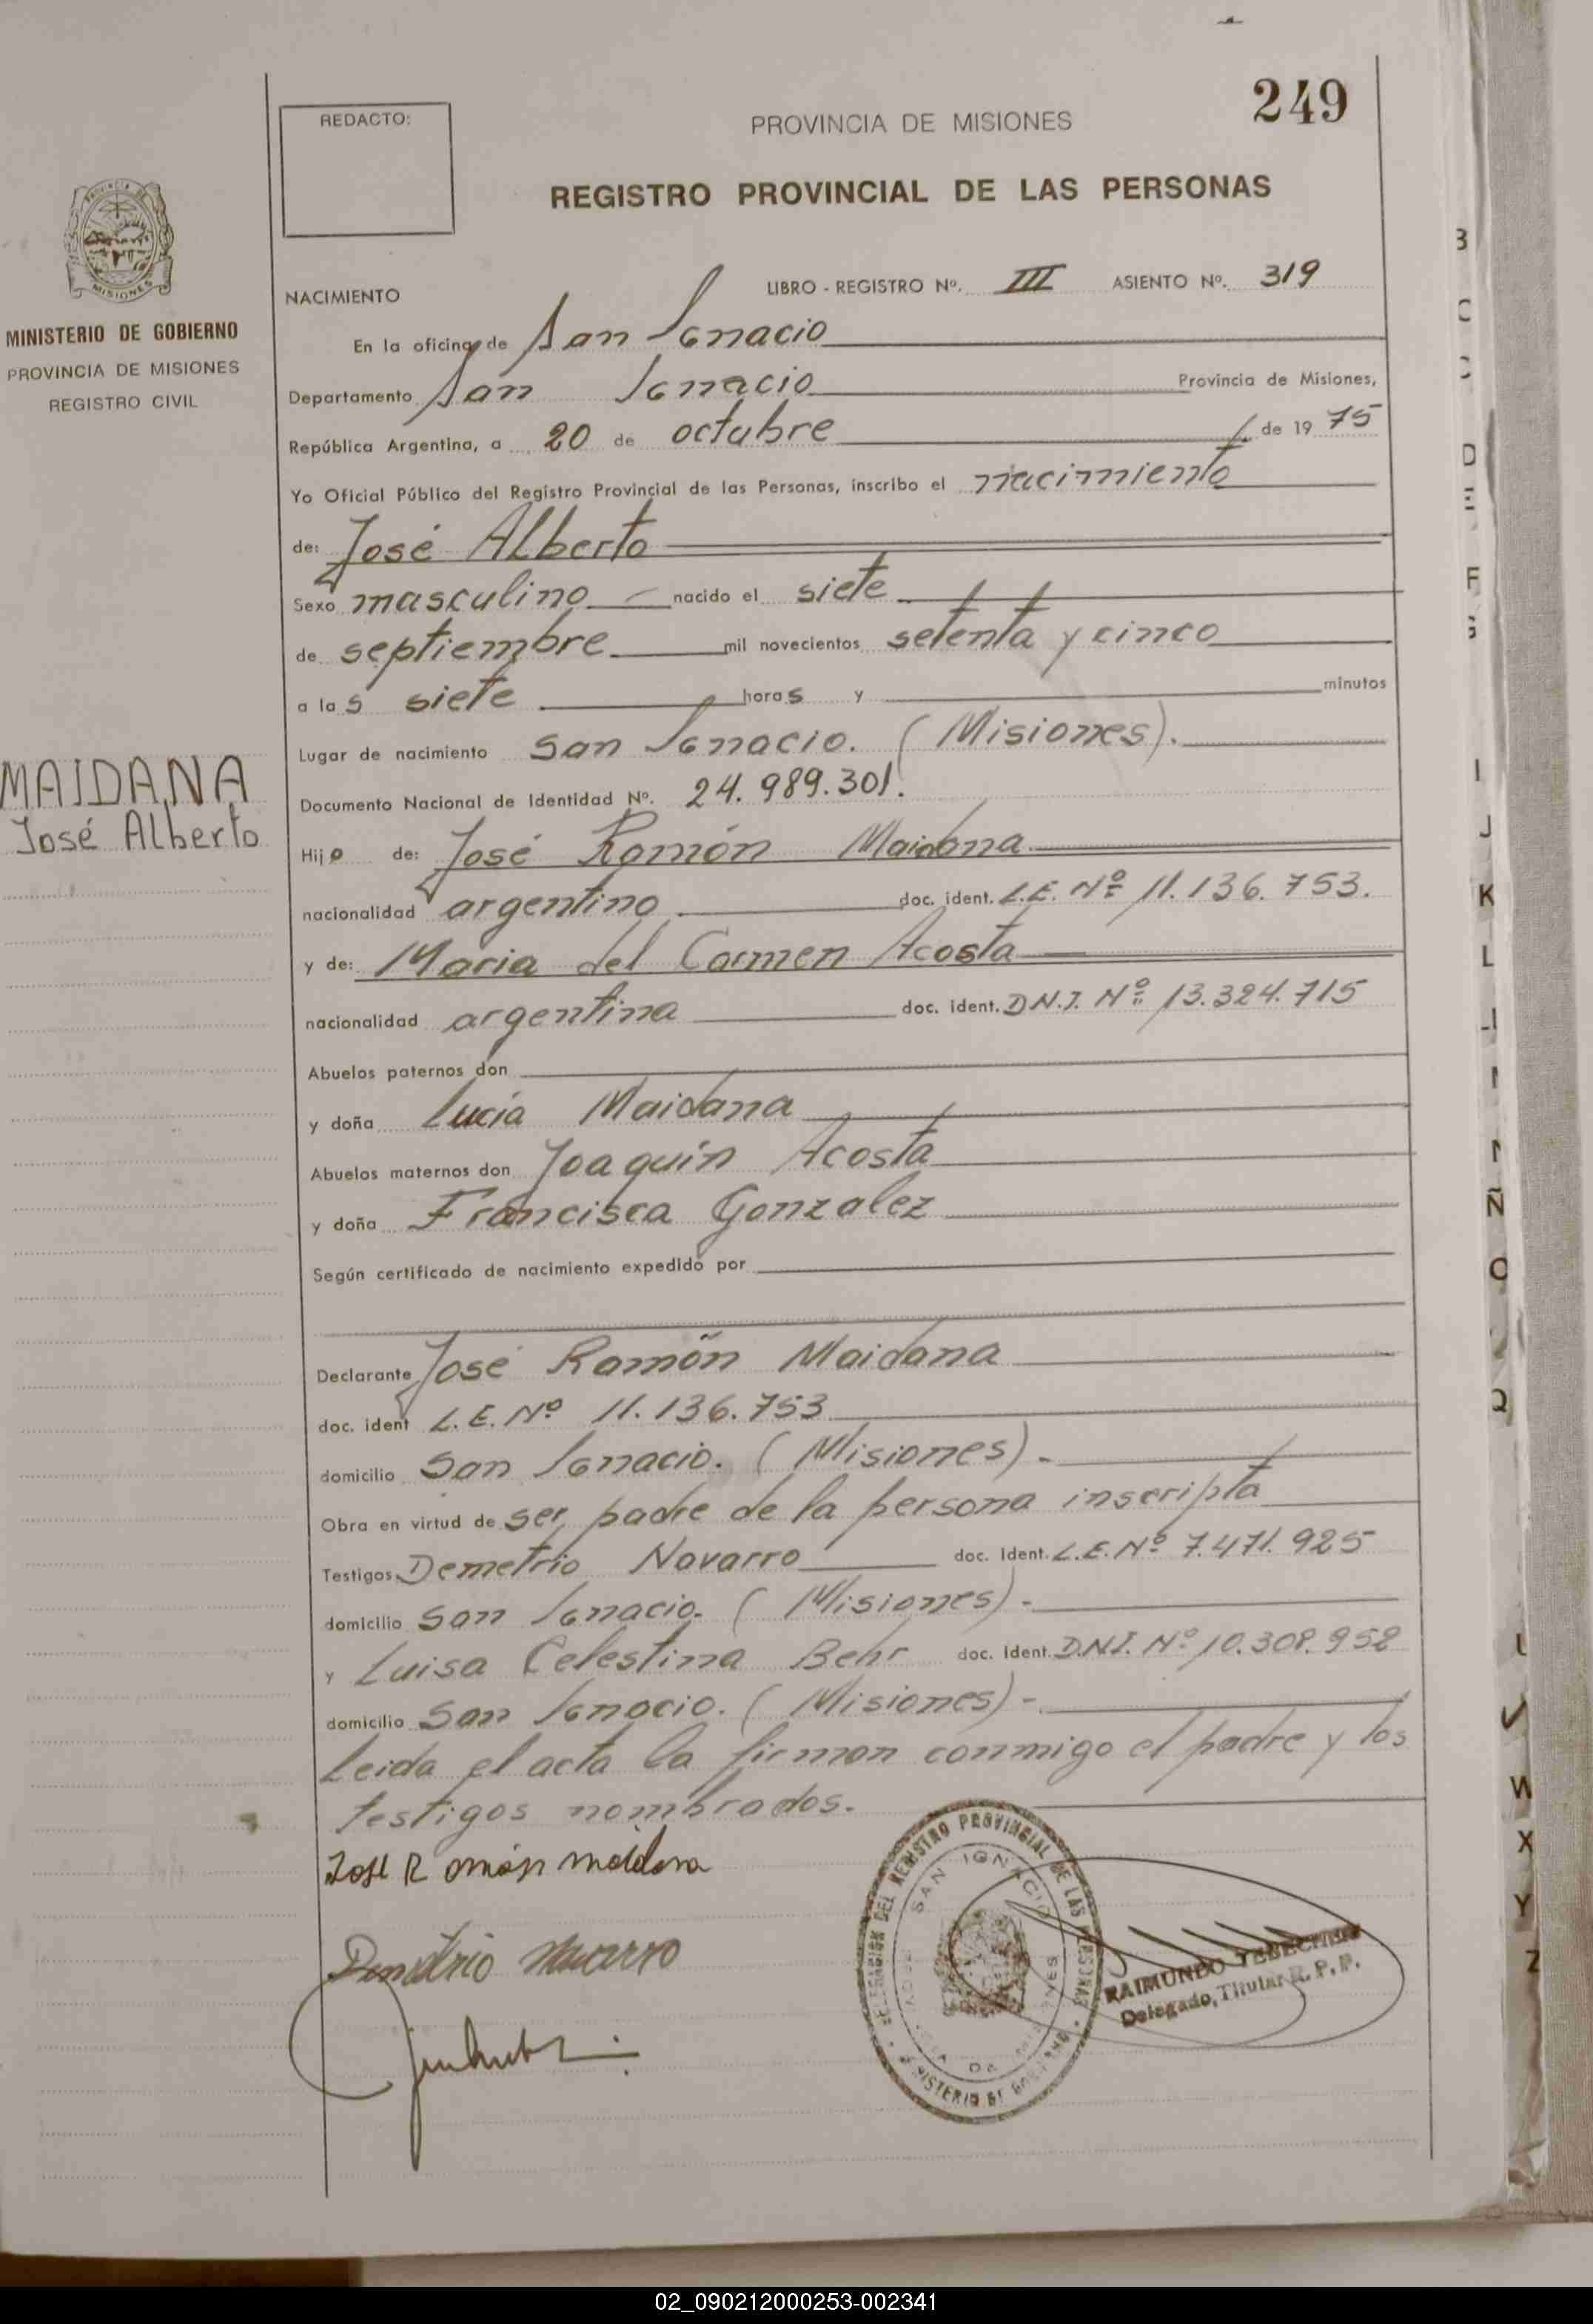 249
REDACTO:
PROVINCIA DE MISIONES
REGISTRO PROVINCIAL DE LAS PERSONAS
PROVINCIA DE
MISIONES
MINISTERIO DE GOBIERNO
PROVINCIA DE MISIONES
REGISTRO CIVIL
MAIDANA
José Alberto
NACIMIENTO LIBRO - REGISTRO Nº. III ASIENTO Nº. 319
En la oficina de San Ignacio
Departamento San Ignacio Provincia de Misiones,
República Argentina, a 20 de octubre de 1975
Yo Oficial Público del Registro Provincial de las Personas, inscribo el nacimiento
de: José Alberto
Sexo masculino nacido el siete
de septiembre mil novecientos setenta y cinco
a las siete horas y minutos
Lugar de nacimiento San Ignacio. (Misiones).
Documento Nacional de Identidad Nº. 24.989.301.
Hijo de: José Ramón Maidana
nacionalidad argentino doc. ident. L.E. Nº 11.136.753.
y de: Maria del Carmen Acosta
nacionalidad argentina doc. ident. D.N.I. Nº 13.324.715
Abuelos paternos don
y doña Lucía Maidana
Abuelos maternos don Joaquín Acosta
y doña Francisca Gonzalez
Según certificado de nacimiento expedido por
Declarante José Ramón Maidana
doc. ident L.E. Nº 11.136.753
domicilio San Ignacio. (Misiones).
Obra en virtud de ser padre de la persona inscripta
Testigos Demetrio Navarro doc. Ident. L.E. Nº 7.471.925
domicilio San Ignacio. (Misiones).-
y Luisa Celestina Behr doc. Ident. D.N.I. Nº 10.308.958
domicilio San Ignacio. (Misiones)-
Leida el acta la firman conmigo el padre y los
testigos nombrados.
José Ramón maidana
Demetrio Navarro
DELEGACION DEL REGISTRO PROVINCIAL DE LAS PERSONAS
SAN IGNACIO
MINISTERIO DE GOBIERNO
RAIMUNDO
Delegado Titular R. P. P.
B
C
D
E
F
G
I
J
K
L
Ñ
O
Q
W
X
Y
Z
02_090212000253-002341